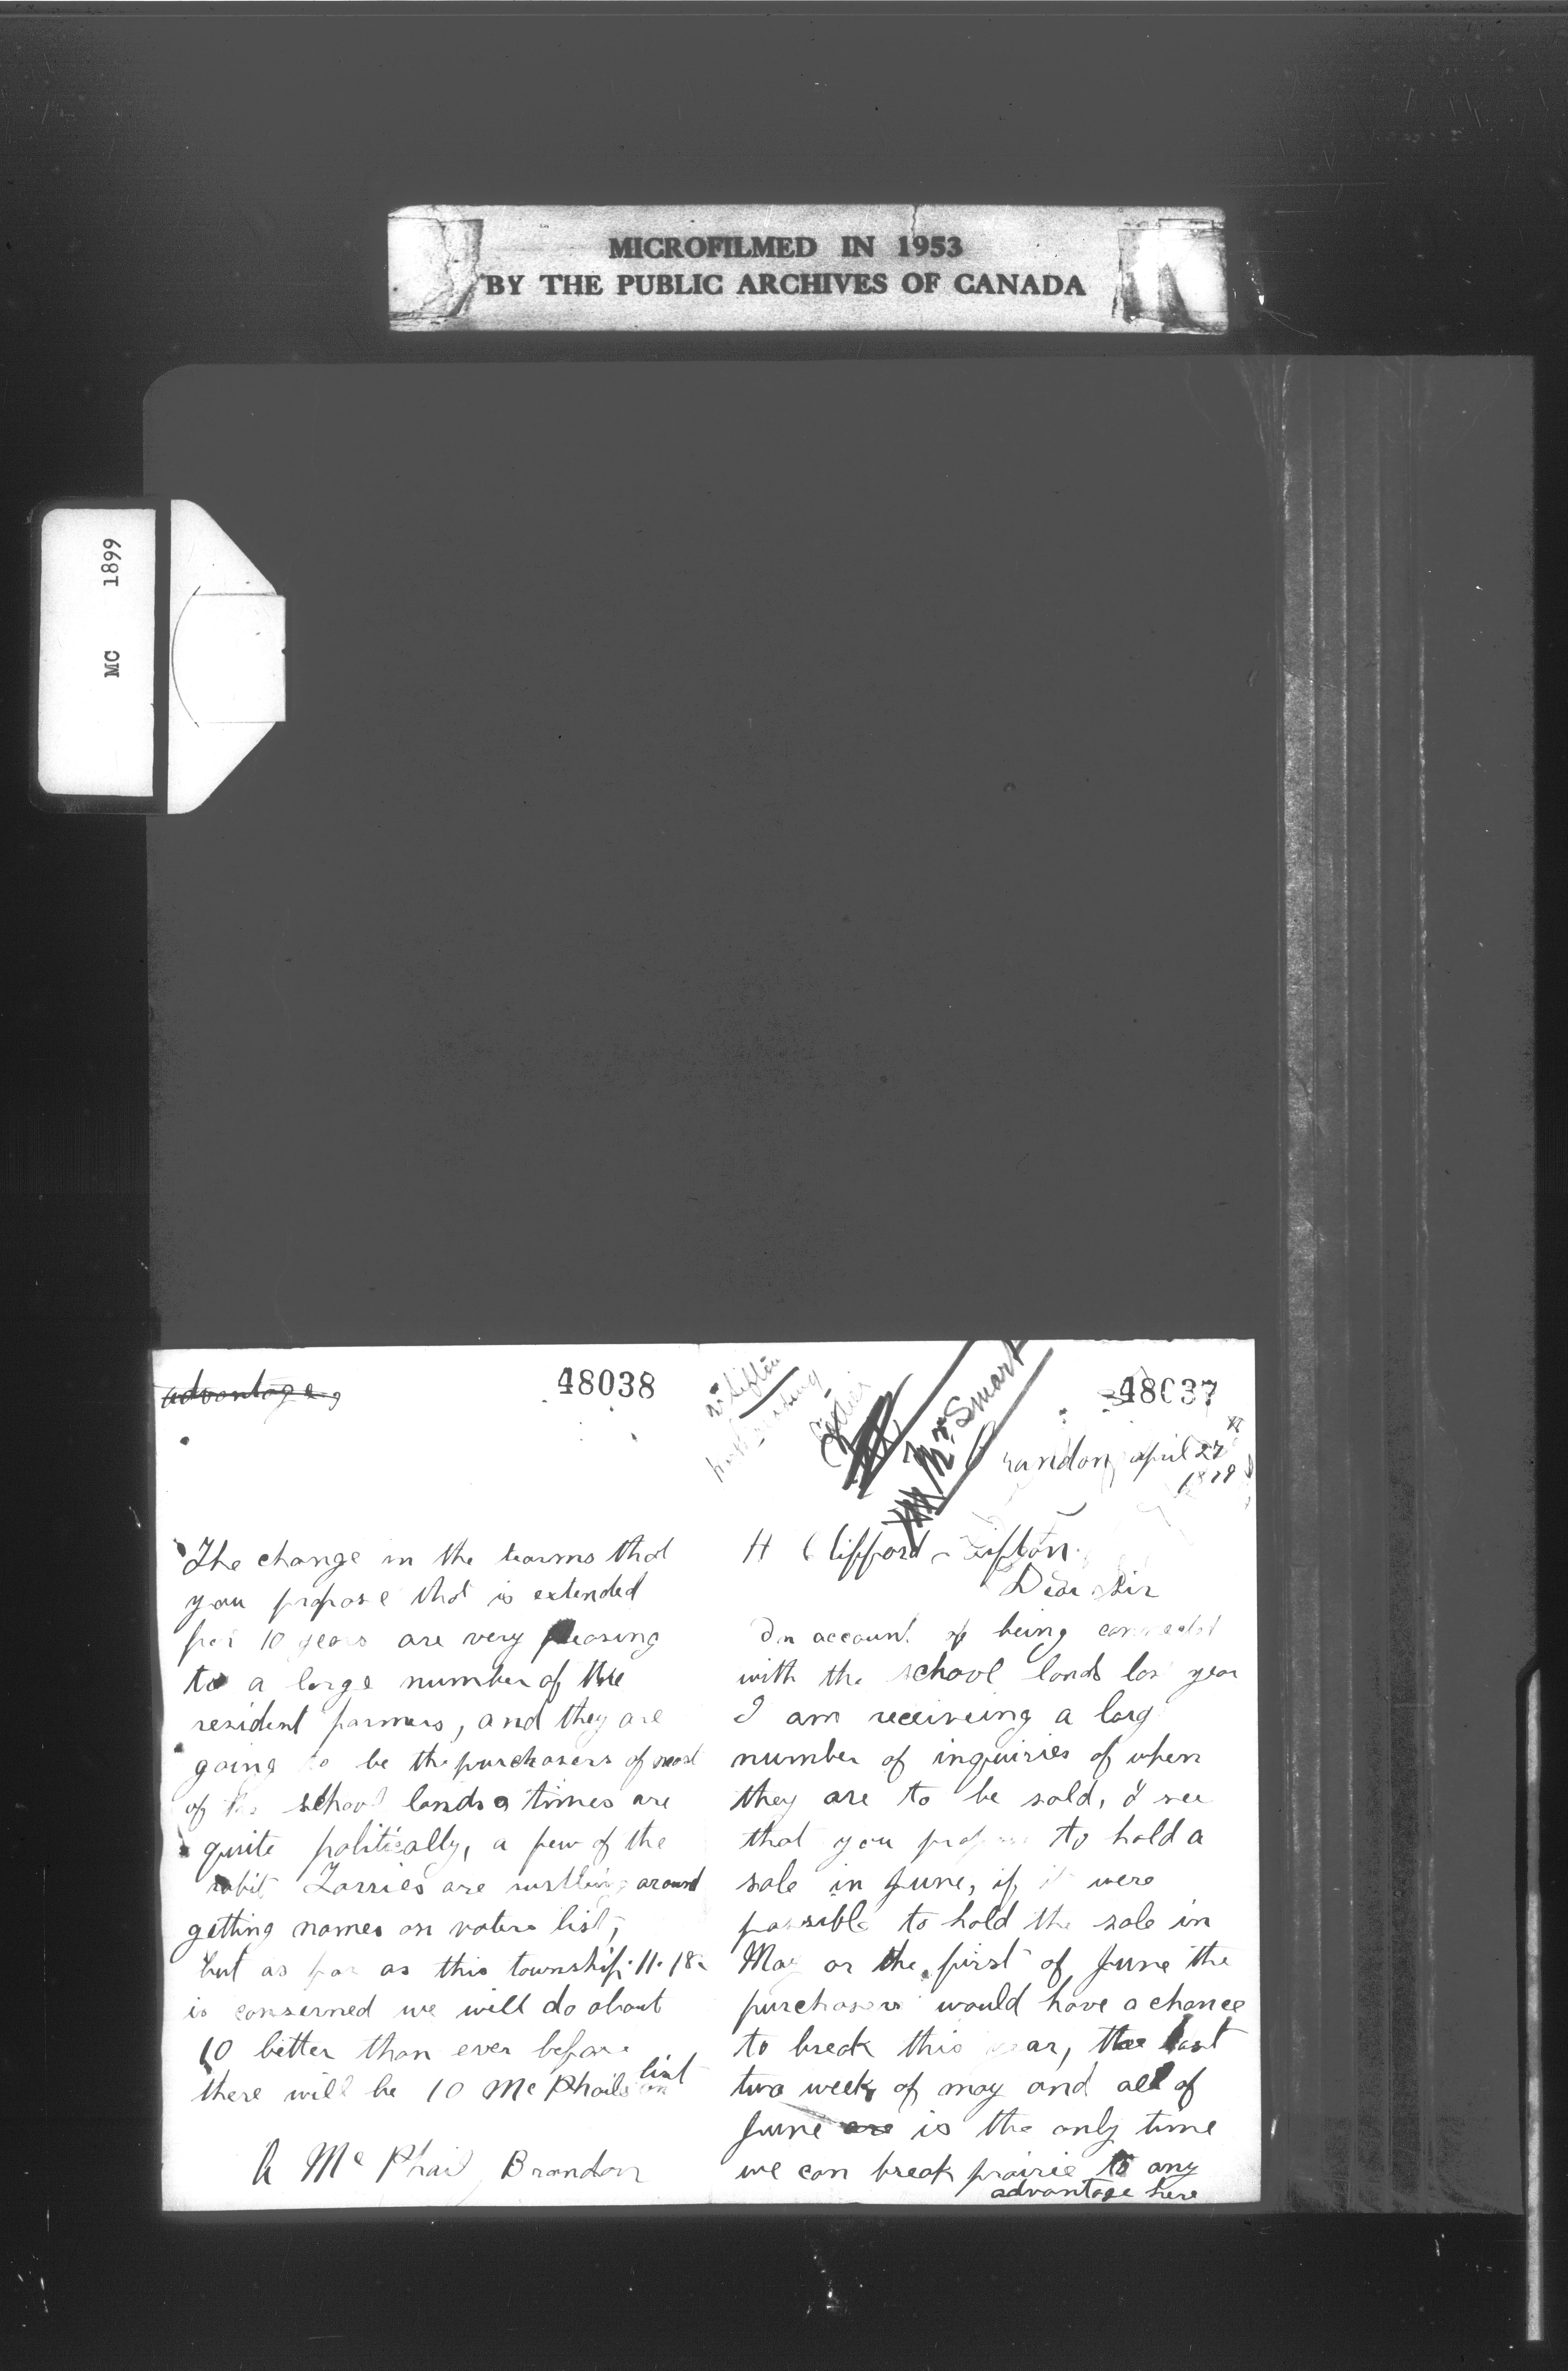 MICROFILMED IN 1953
BY THE PUBLIC ARCHIVES OF CANADA
MC 1899
48037
Mr. Smart
randon, april 27
H Clifford Sifton.
Dear Sir
On account of being connected
with the school lands las year
I am receiveing a larg
number of inquiries of when
they are to be sold, I see
that you propose to hold a
sale in June, if it were
possible to hold the sale in
May or the first of June the
purchasers would have a chance
to break this year, the last
two weeks of may and all of
June are is the only time
we can break prairie to any
advantage here
48038
advantage,
The change in the tearms that
you propose that is extended
for 10 years are very pleasing
to a large number of the
resident farmers, and they are
going to be the purchasers of most
of the school lands times are
quite politically, a few of the
rabit Torries are rustling around
getting names on voters list,
but as far as this township 11.18.
is conserned we will do about
10 better than ever before
there will be 10 Mc Phails on list
A Mc Phail Brandon